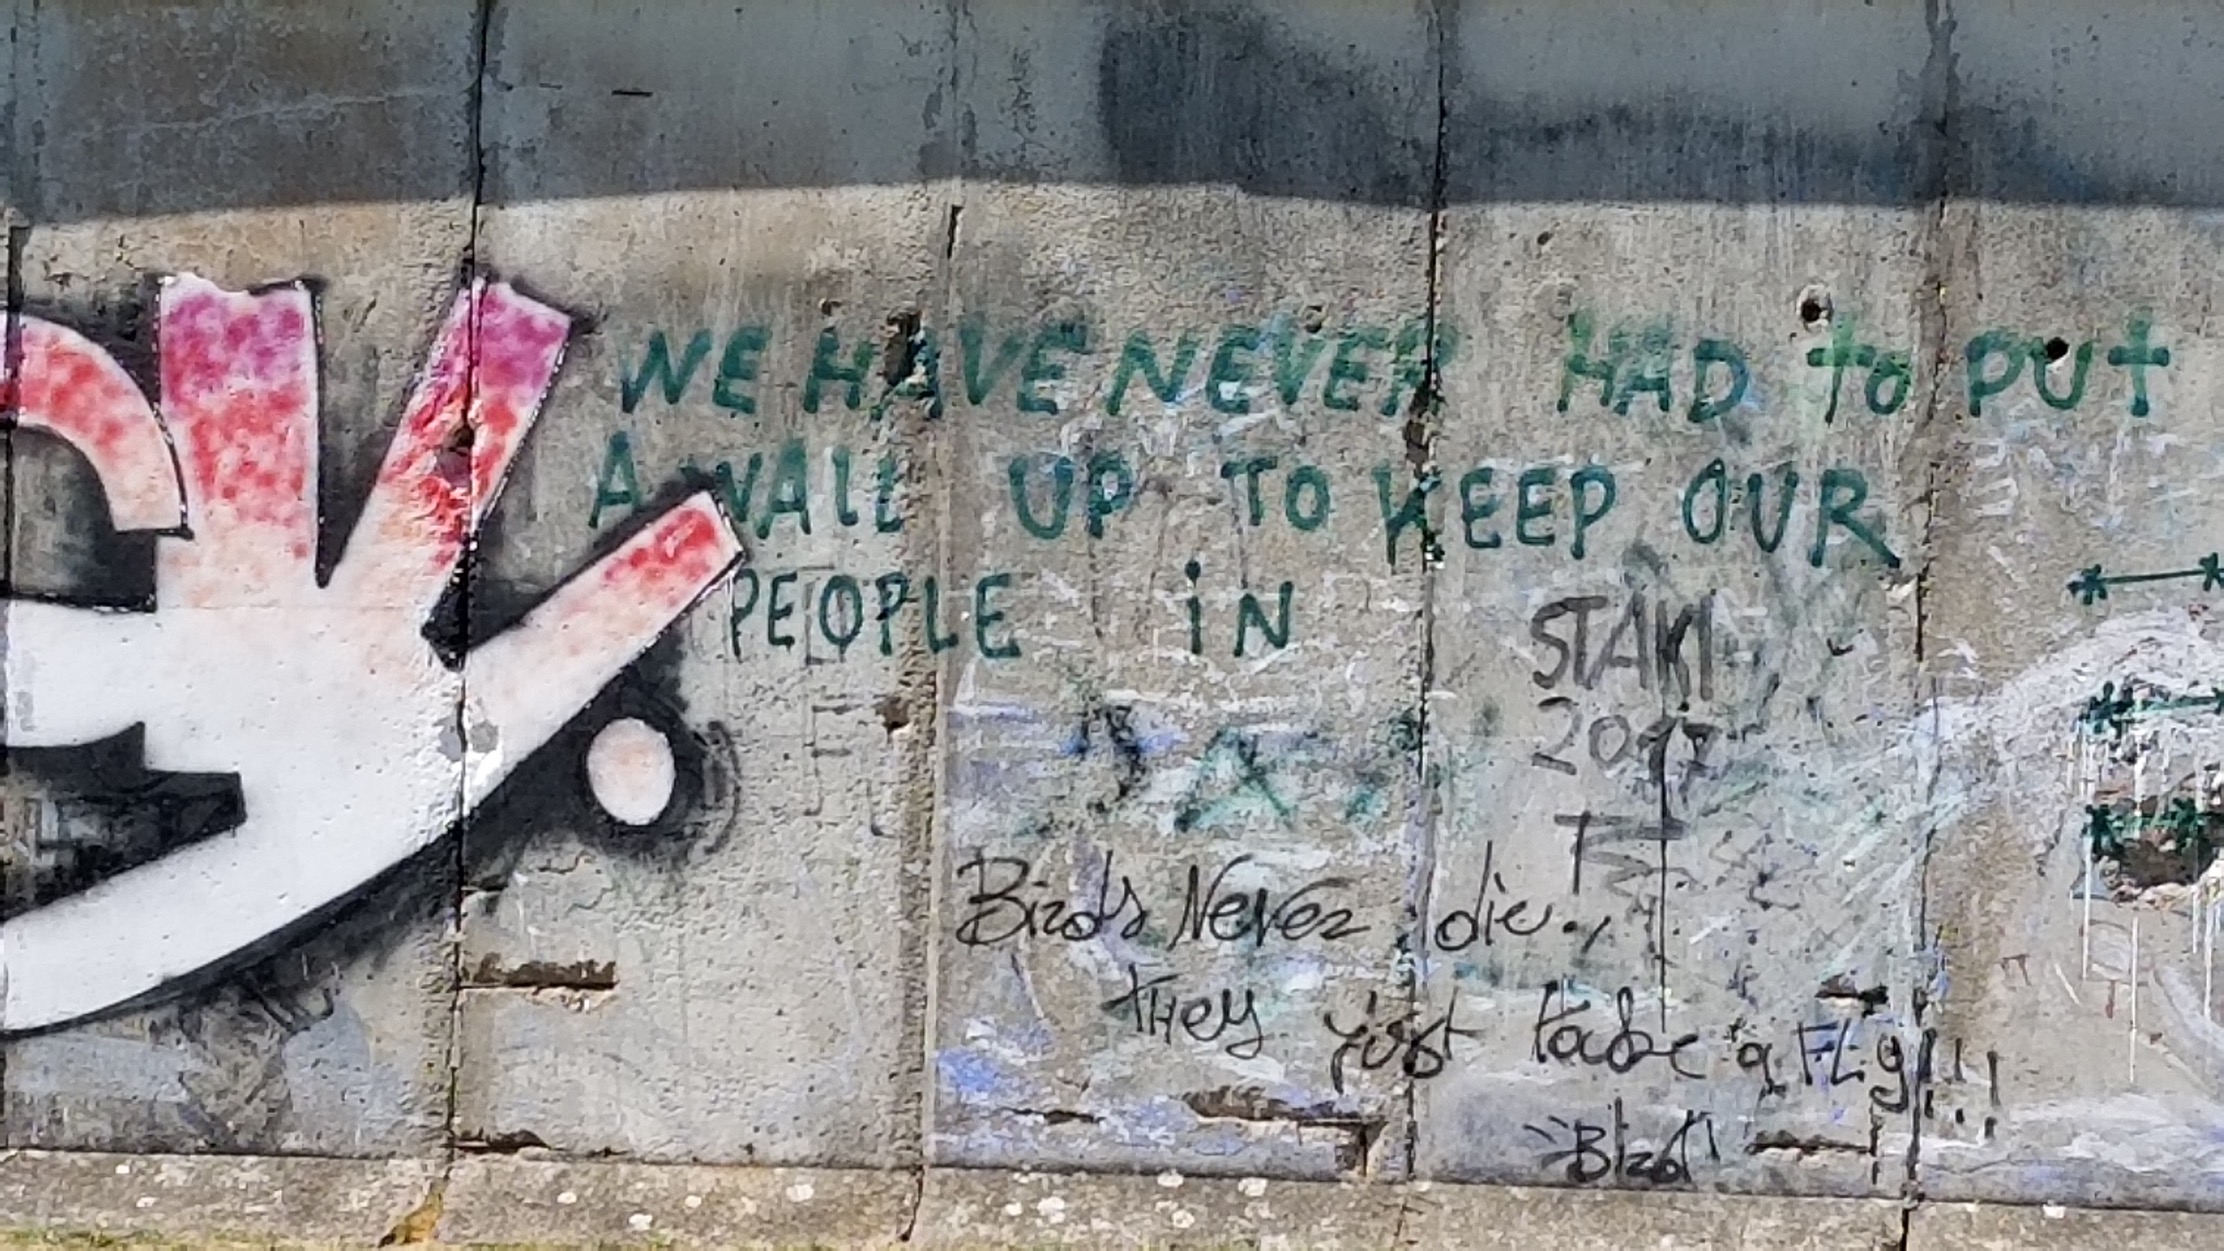 WE HAVE NEVER HAD to PUt
A WALL UP TO KEEP OUR
PEOPLE iN
STAKI
2017
Birds Never die..,
They just take a FLy!!!
"Bird"